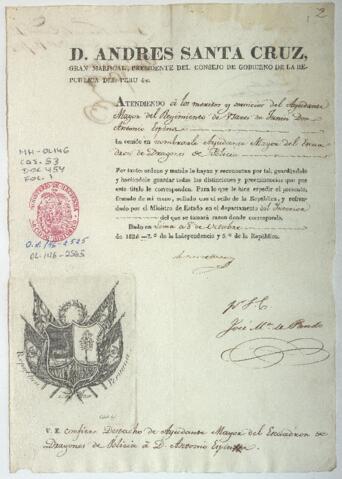 2
D. ANDRES SANTA CRUZ,
GRAN MARISCAL, PRESIDENTE DEL CONSEJO DE GOBIERNO DE LA RE-
PUBLICA DEL PERU &c.
ATENDIENDO á los meritos y servicios del Ayudante
Mayor del Regimiento de Usares de Junin Don
Antonio Espinosa
La venido en nombrarle Ayudante Mayor del Escua
dron de Dragones de Policia
Por tanto ordeno y mando le hayan y reconozcan por tal, guardandole
y haciendole guardar todas las distinciones y preeminencias que por
este titulo le corresponden. Para lo que le hice expedir el presente,
firmado de mi mano, sellado con el sello de la República, y refren-
dado por el Ministro de Estado en el departamento del Interior
del que se tomará razon donde corresponda.
Dado en Lima a 5 de Octubre
de 1826—7.º de la Independencia y 5.º de la República.
MH-OL146
CAJ. 53
DOC 454
FOL. 1
OL.146-2525
P. S. E.
José Ma. de Pando
Republica Peruana
V. E. confiere Despacho de Ayudante Mayor del Escuadron de
Dragones de Policia á D. Antonio Espinosa